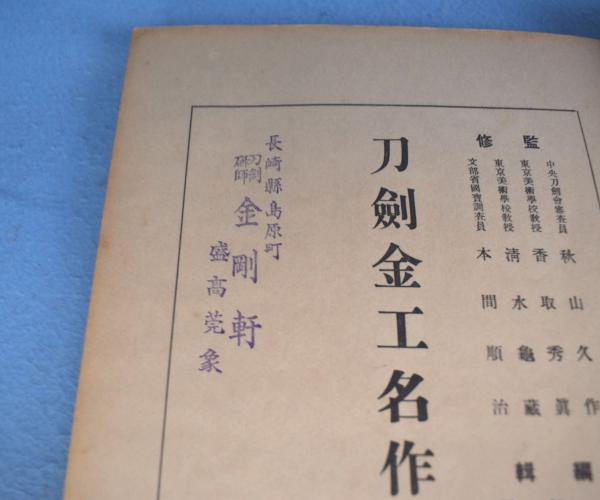 監修
中央刀劍會審査員 秋山久作
東京美術學校教授 香取秀眞
東京美術學校教授 清水龜藏
文部省國寶調査員 本間順治
編輯
刀劍金工名作
長崎縣島原町
刀劍研師 金剛軒
盛高莞象